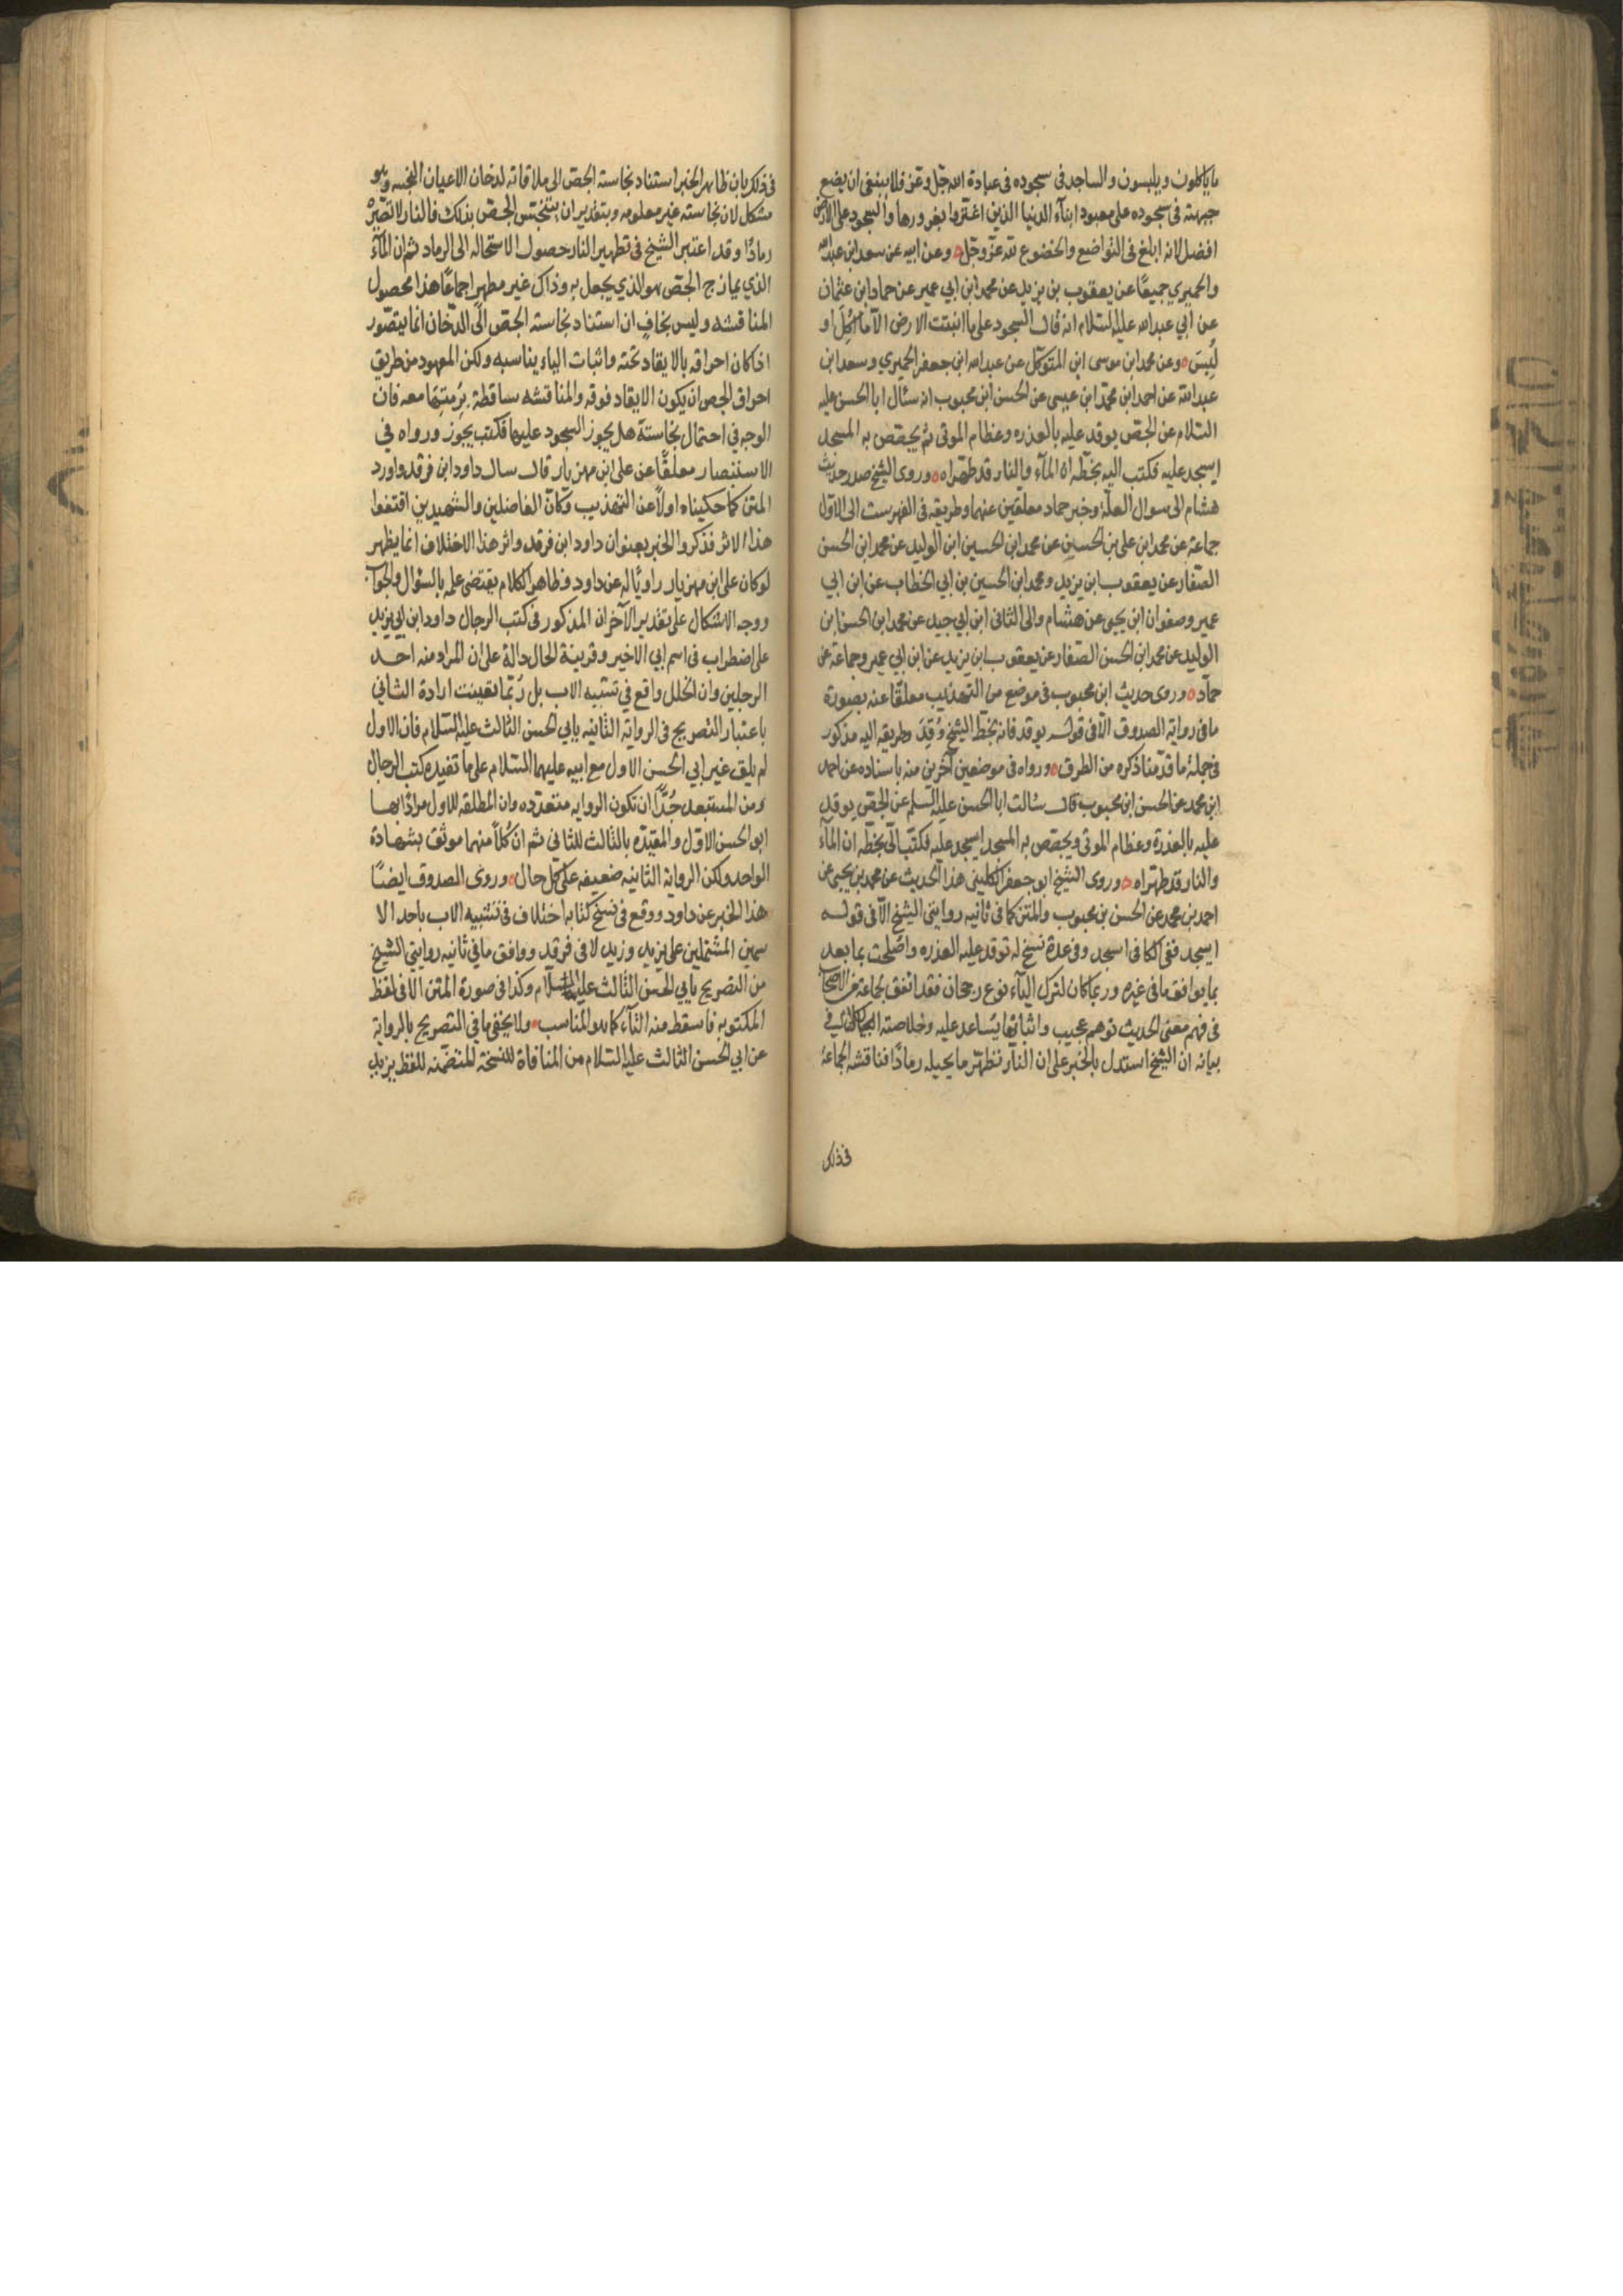 ما ياكلون ويلبسون والساجد فى سجوده فى عبادة الله جل وعز فلا ينبغى ان يضع
جبهته فى سجوده على معبود ابنآء الدنيا الذين اغترّوا بغرورها والسجود على الارض
افضل لانه ابلغ فى التواضع والخضوع لله عزّ وجلّ وعن ابيه عن سعد ابن عبد الله
والحميري جميعًا عن يعقوب بن يزيد عن محمد ابن ابي عمير عن حماد ابن عثمان
عن ابي عبد الله عليه السلام انه قال السجود على ما انبتت الارض الا ما اُكِلَ او
لُبِسَ وعن محمد ابن موسى ابن المتوكل عن عبد الله ابن جعفر الحميري وسعد ابن
عبد الله عن احمد ابن محمّد ابن عيسى عن الحسن ابن محبوب انه سئال ابا الحسن عليه
السلام عن الجصّ يوقد عليه بالعذره وعظام الموتى ثم يجصّص به المسجد
ايسجد عليه فكتب اليه بخطّه ان المآء والنار قد طهّراه وروى الشيخ صدر حديث
هشام الى سوال العلّة وخبر حماد معلقين عنهما وطريقه فى الفهرست الى الاوّل
جماعة عن محمد ابن على بن الحسين عن محمد ابن الحسين ابن الوليد عن محمد ابن الحسن
الصفار عن يعقوب ابن يزيد ومحمد ابن الحسين بن ابي الخطاب عن ابن ابي
عمير وصفوان ابن يحيى عن هشام والى الثانى ابن ابي جيد عن محمد ابن الحسن ابن
الوليد عن محمد ابن الحسن الصفار عن يعقوب ابن يزيد عن ابن ابي عمير وجماعة عن
حمآد وروى حديث ابن محبوب فى موضع من التهذيب معلقًا عنه بصورة
ما فى رواية الصدوق الّا فى قوله يوقد فانه بخطّ الشيخ وُقِدَ وطريقه اليه مذكور
فى جملة ما قدّمنا ذكره من الطرق ورواه فى موضعين آخرين منه باسناده عن احمد
ابن محمد عن الحسن ابن محبوب قال سئالت ابا الحسن عليه السلم عن الجصّ يوقد
عليه بالعذرة وعظام الموتى ويجصّص به المسجد ايسجد عليه فكتب الىّ بخطّه ان المآء
والنار قد طهّراه وروى الشيخ ابو جعفر الكليني هذا الحديث عن محمد بن يحيى عن
احمد بن محمد عن الحسن بن محبوب والمتن كما فى ثانيه روايتي الشيخ الّا فى قوله
ايسجد ففى الكافى اسجد وفى عدة نسخ له توقد عليه العذره واصلحت بما بعد
بما يوافق ما فى غيره وربما كان لترك اليآء نوع رجحان فقد اتفق لجماعة من الاصحاب
فى فهم معنى الحديث توهم عجيب واثباتها يساعد عليه وخلاصته الحال فى
بيانه ان الشيخ استدل بالخبر على ان النار تطهّر ما يحيله رمادًا فناقشه الجماعة
فى ذلك
فى ذلك بان ظاهر الخبر استناد نجاسته الجصّ الى ملاقاته لدخان الاعيان النجسه وهو
مشكل لان نجاسته غير معلومه وبتقدير ان يتنجّس الجصّ بذلك فالنار لا تصيّره
رمادًا وقد اعتبر الشيخ فى تطهير النار حصول الاستحاله الى الرماد ثم ان المآء
الذي يمازج الجصّ هو الذي يجعل به وذاك غير مطهر اجماعًا هذا محصول
المناقشه وليس بخافٍ ان استناد نجاسته الجصّ الى الدّخان انما يتصّور
اذا كان احراقه بالايقاد تحته واثبات الياء يناسبه ولكن المعهود من طريق
احراق الجص ان يكون الايقاد فوقه والمناقشه ساقطة برمتها معه فان
الوجه فى احتمال نجاسته هل يجوز السجود عليها فكتب يجوز ورواه في
الاستبصار معلقًا عن على ابن مهزيار قال سال داود ابن فرقد واورد
المتن كما حكيناه اولًا عن التهذيب وكانّ الفاضلين والشهيدين اقتفوا
هذا الاثر فذكروا الخبر بعنوان داود ابن فرقد واثر هذا الاختلاف انما يظهر
لو كان على ابن مهزيار راويًا له عن داود وظاهر الكلام يقتضى علمه بالسؤال والجواب
ووجه الاشكال على تقدير الآخر ان المذكور فى كتب الرجال داود ابن ابي يزيد
على اضطراب فى اسم ابي الاخير وقرينة الحال دالة على ان المراد منه احد
الرجلين وان الخلل واقع في تشبيه الاب بل رُبّما تعينت ارادة الثاني
باعتبار التصريح فى الرواية الثانيه بابي الحسن الثالث عليه السلام فان الاول
لم يلق غير ابي الحسن الاول مع ابيه عليهما السلام على ما تفيده كتب الرجال
ومن المستبعد جُدًّا ان تكون الروايه متعدّده وان المطلقه للاول مرادًا بها
ابو الحسن الاوّل والمقيّده بالثالث للثانى ثم ان كُلًا منهما موثّق بشهادة
الواحد ولكن الرواية الثانيه ضعيفه على كل حال وروى الصدوق ايضًا
هذا الخبر عن داود ووقع فى نسخ كتابه اختلاف فى تشبيه الاب باحد الا
سمين المشتملين على يزيد وزيد لا فى فرقد ووافق ما في ثانيه روايتي الشيخ
من التصريح بابي الحسن الثالث عليه السلام وكذا فى صورة المتن الا فى لفظ
المكتوبه فاسقط منه التآء كما هو المناسب ولا يخفى ما في التصريح بالرواية
عن ابي الحسن الثالث عليه السلام من المنافاة للنسخة المتضمّنه للفظ يزيد